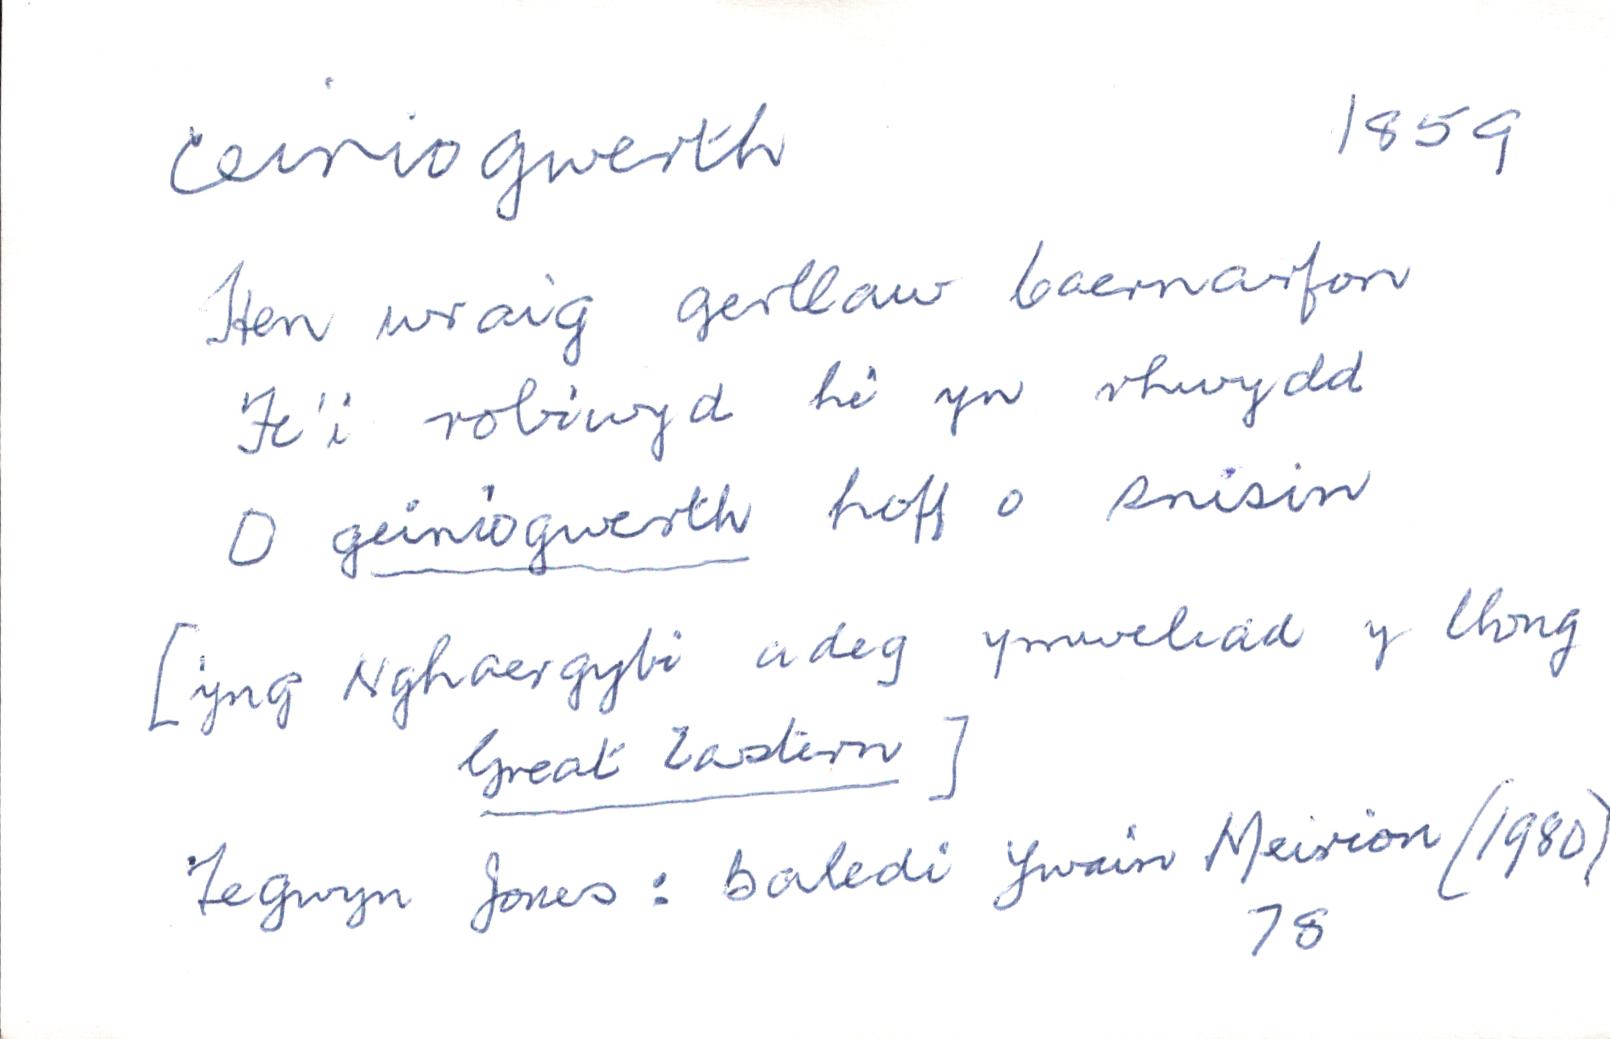 ceiniogwerth 1859
Hen wraig gerllaw Caernarfon
Fe'i robiwyd hi yn rhwydd
O geiniogwerth hoff o snisin
[yng Nghaergybi adeg ymweliad y llong
Great Eastern]
Tegwyn Jones: Baledi Ywain Meirion (1980)
78